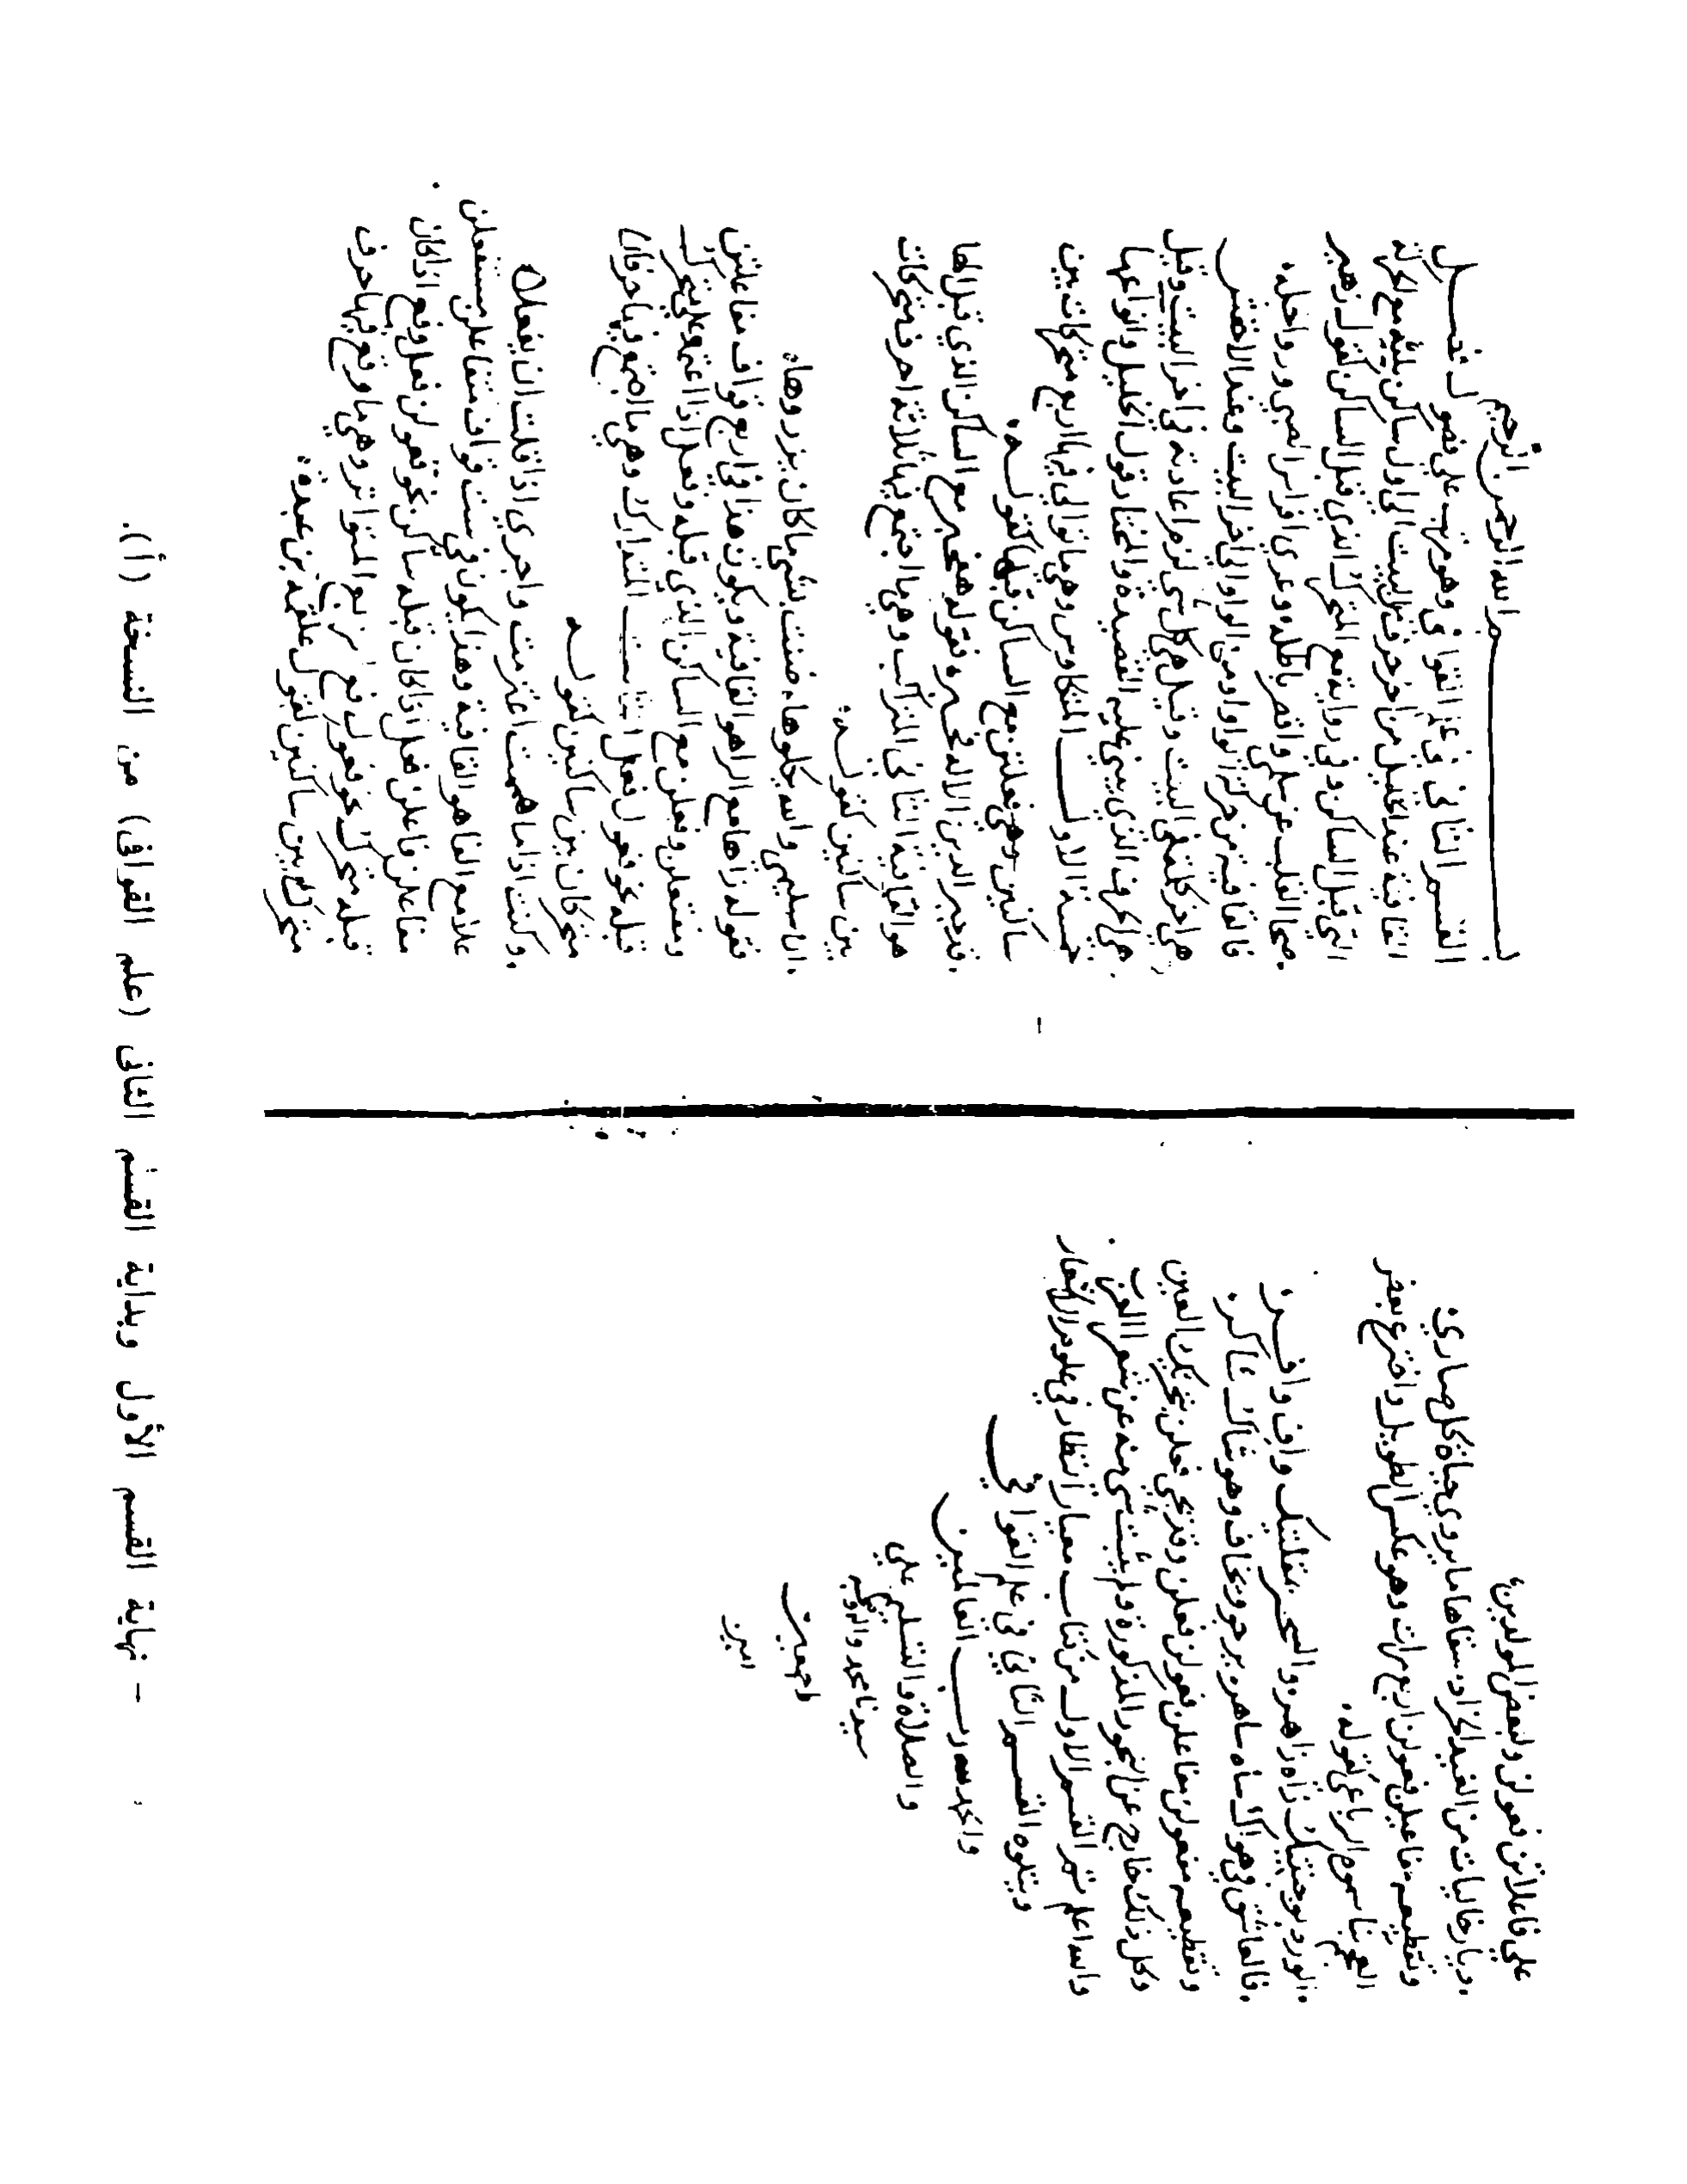 علي فاعلاتن فعولن ولبعض المولدين
ديار خاليات من الغيد الخرّاد سقاها ما يروي حياة كل صاري
وتقطيعه مفاعيلن فعولن اربع مرات وهو عكس الطويل واخترع بعض
العجم بناء سموه الرباعي كقوله
الورد بوجنتيك زاه زاهر والسحر بمقلتيك واف وافــر
فالعاشق في هواك ساه ساهر يرجو ويخاف وهو شاك شاكر
وتقطيعه مفعولن مفاعلن فعولن فعلن وقد يجي فعلن بتحريك العين
وكل ذلك خارج عن البحور المذكورة ولم يثبت شيء منه عن شعراء العرب
والله اعلم تم القسم الاول من كتاب معيار النظار في علوم الاشعار
ويتلوه القسم الثاني في علم القوافي
والحمد لله رب العالمين
والصلاة والتسليم علي
سيدنا محمد واله وصحبه
اجمعين
امين
بسم الله الرحمن الرحيم
القسم الثاني في علم القوافي وهو مرتب على فصول فصل
القافية عند الخليل من اخر حرف في البيت الى اول ساكن يليه مع الحركة
التي قبل الساكن وفي رواية مع المتحرك الذي قبل الساكن كقول زهير
صحا القلب عن سلمى واقصر باطله وعري افراس الصبي ورواحله
فالقافية من حركة الواو او من الواو الى اخر البيت وعند الاخفش
هي اخر كلمة في البيت وقيل هي كل شي لزم اعادته في اخر البيت وقيل
هي الحرف الذي يبنى عليه القصيدة والمختار قول الخليل وانواعها
خمسة الاول المتكاوس وهي ما توالى فيها اربع متحركات بين
ساكنين وهي فعلتن مع الساكن قبلها كقوله
قد جبر الدين الاله فجبر فقوله هفجبر مع الساكن الذي قبل الها
هو القافية الثاني المتراكب وهي ما اجتمع فيها ثلاثة احرف متحركات
بين ساكنين كقوله
ان سليمى والله يكلوها ضنت بشي ما كان يرزوها
فقوله زاها مع الراء هو القافية ويكون هذا في اربع قواف مفاعلتن
ومفتعلن وفعلن مع الساكن الذي قبله وفعل اذا اعتمد على متحرك
قبله نحو فعول فعل الثالث المتدارك وهي ما اجتمع فيها حرفان
متحركان بين ساكنين كقوله
وكنت اذا ما هممت اعتزمت واحري اذا قلت ان يفعلا
علا مع الفا هو القافية وهذا يكون في ست قواف متفاعلن مستفعلن
مفاعلن فاعلن فعل اذا كان قبله ساكن نحو فعولن فعل وفع اذا كان
قبله متحرك نحو فعول فع الرابع المتواتر وهي ما وقع فيها حرف
متحرك بين ساكنين كقول علقمة بن عبدة
- نهاية القسم الأول وبداية القسم الثانى (علم القوافى) من النسخة (أ).